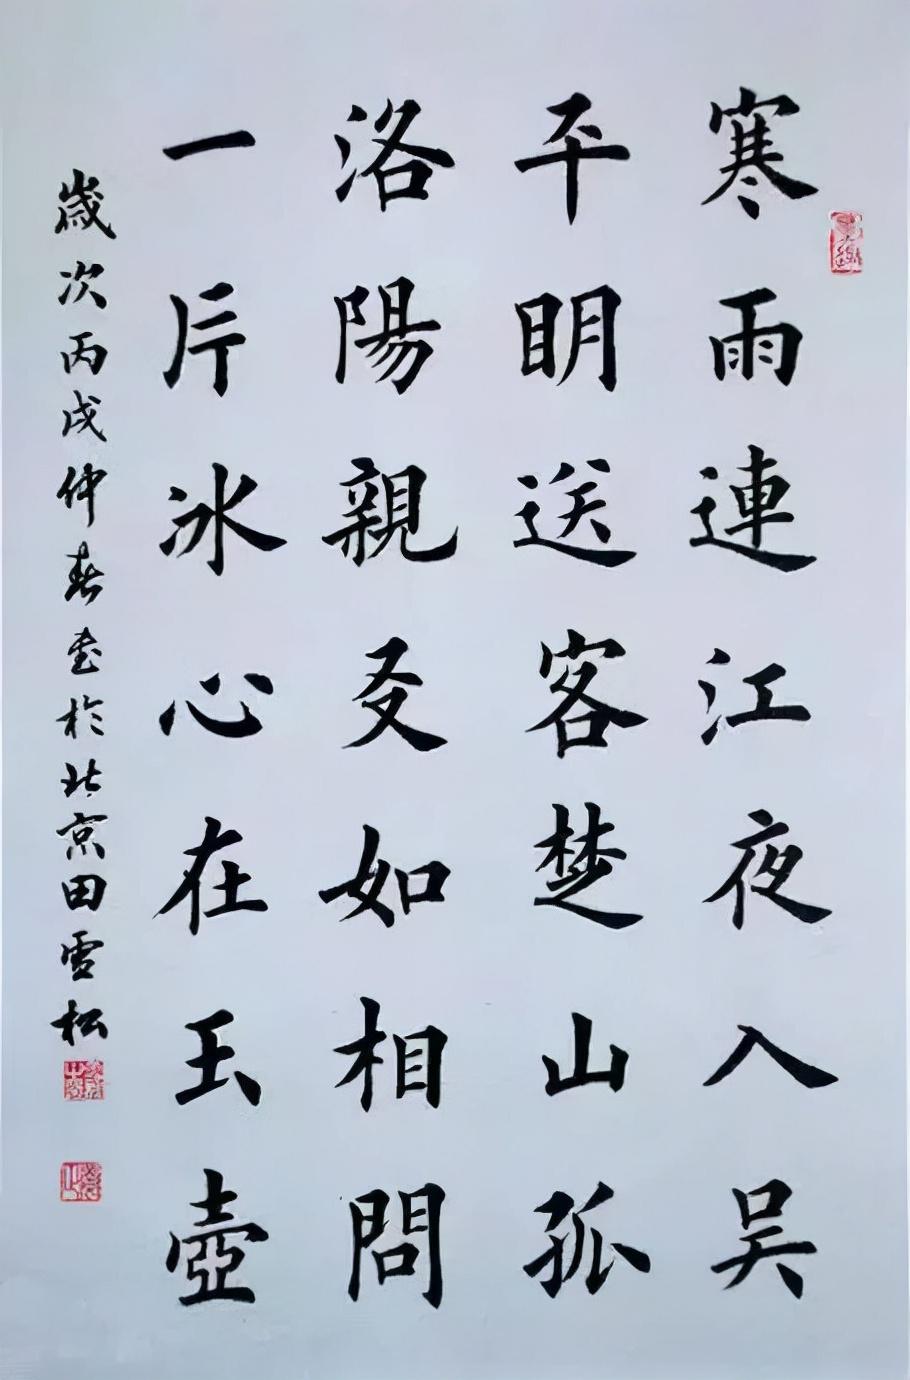 寒雨連江夜入吴
平明送客楚山孤
洛陽親友如相問
一片冰心在玉壺
歲次丙戌仲春書於北京田雪松